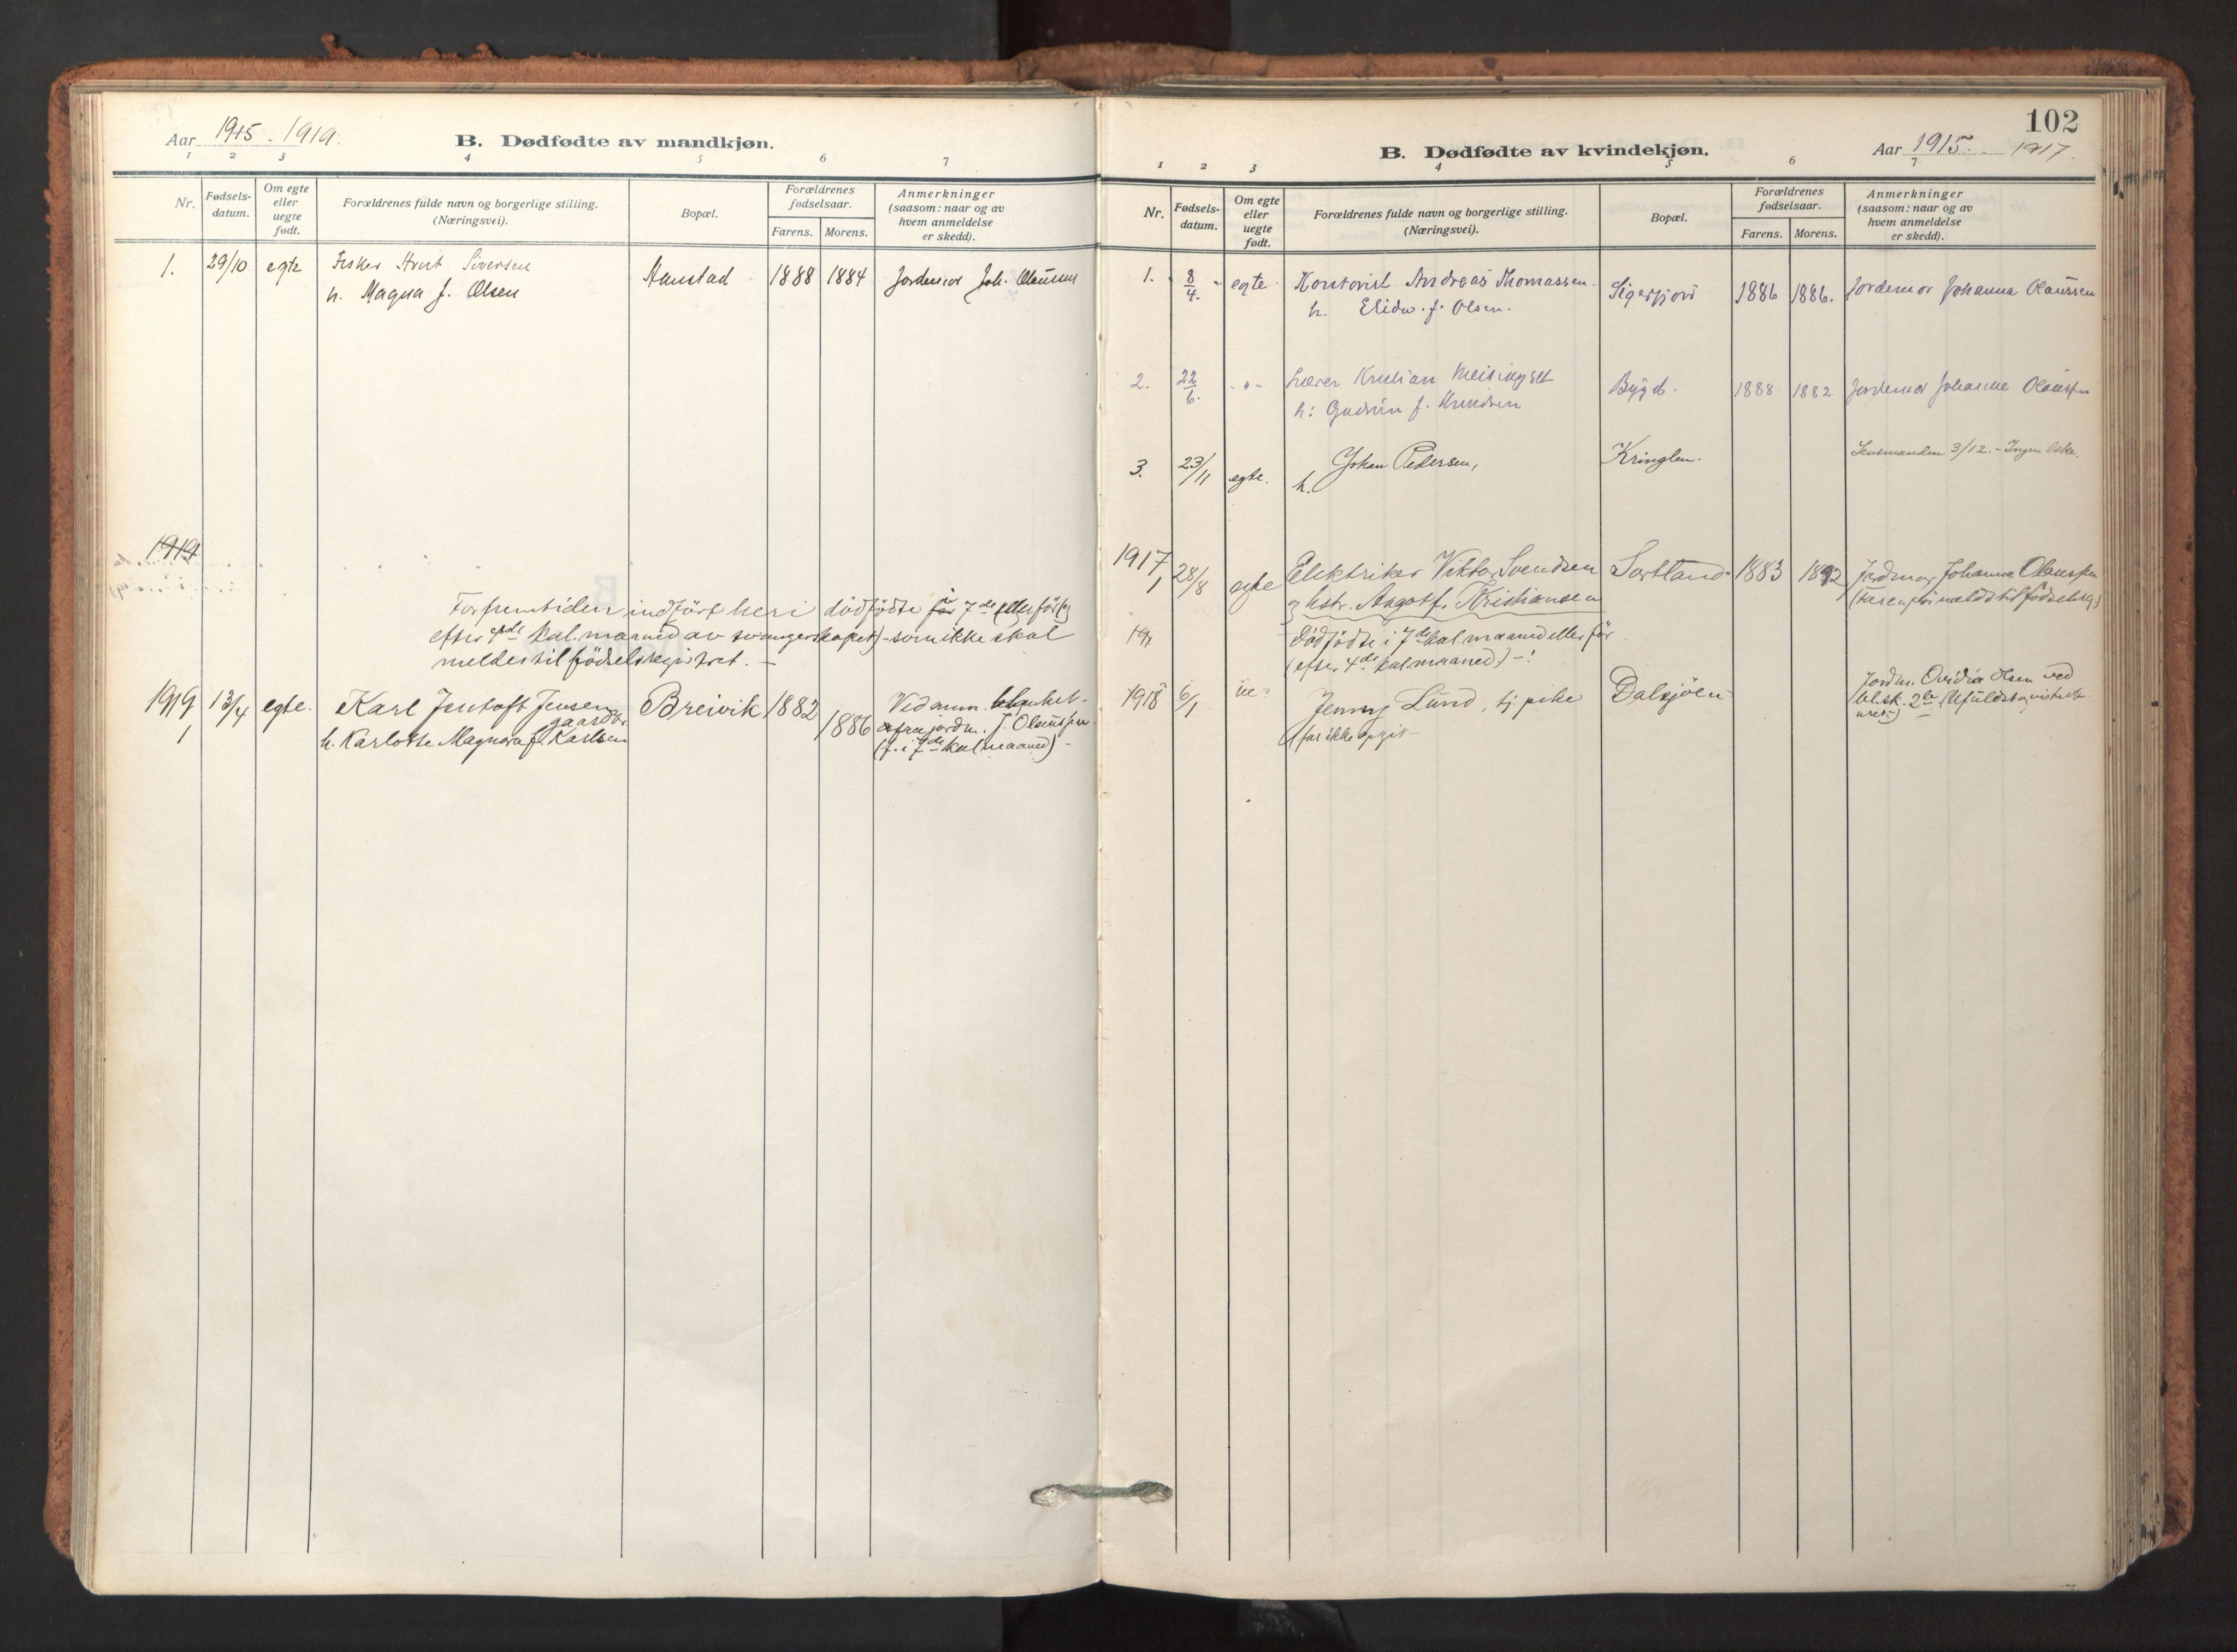 Aar 1915-1919.
B. Dødfødte av mandkjøn.
1 2 3 4 5 6 7
Nr. Fødsels-datum. Om egte eller uegte født. Forældrenes fulde navn og borgerlige stilling. (Næringsvei). Bopæl. Forældrenes fødselsaar. Farens. Morens. Anmerkninger (saasom: naar og av hvem anmeldelse er skedd).
1. 29/10 egte Fisker Sivertsen Aanstad 1888 1884 Jordemor Joh. Olaussen
h. Magna f. Olsen
1919
For fremtiden indført heri dødfødte før 7de (eller før og
efter kal. maaned av svangerskapet) - som ikke skal
meldes til fødselsregistret. -
1919 13/4 egte. Karl Jentoft Jensen Breivik 1882 Ved anm.
1 gaardbr. 1886 fra jordm. J. Olaussen
h. Karlotte Magnora f. Karlsen (f. i 7de kal maaned) -
102
B. Dødfødte av kvindekjøn.
Aar 1915. 1917.
1 2 3 4 5 6 7
Nr. Fødsels-datum. Om egte eller uegte født. Forældrenes fulde navn og borgerlige stilling. (Næringsvei). Bopæl. Forældrenes fødselsaar. Farens. Morens. Anmerkninger (saasom: naar og av hvem anmeldelse er skedd).
1. 8/4. egte Kontorist Andreas Thomassen. Sigerfjord 1886 1886. Jordemor Johanna Olaussen
h. f. Olsen.
2. 22/6. -"- Lærer Kristian Meisingset Bygd. 1888 1882 Jordemor Johanne Olaussen
h: Gudrun f. Knudsen
3. 23/11 egte. Johan Pedersen, Kringlen. Lensmanden 3/12. - Ingen
h.
1917
1 28/8 egte Elektriker Viktor Svendsen Sortland 1883 1892 Jordmor Johanna Olaussen
og hstr. Aagot f. Kristiansen
191 Dødfødte i 7de kal. maaned eller før
(efter 4de kal maaned) -!
1918 6/1 ue: Jenny Lund, tj. pike Dalsjøen Jordm. Ovidia Olsen ved
(far ikke opgit -